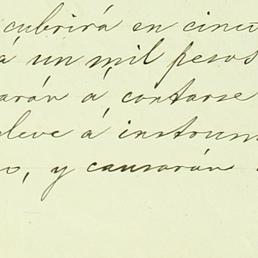 cubrirá en cinc
á un mil pesos
arán á contarse
eleve á instrum
o, y causarán